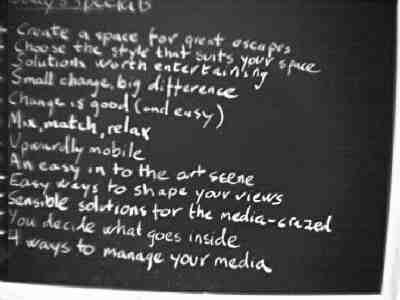 Today's specials
- Create a space for great escapes
- Choose the style that suits your space
- Solutions worth entertaining
- Small change, big difference
- Change is good (and easy)
- Mix, match, relax
- Upwardly mobile
- An easy in to the art scene
- Easy ways to shape your views
- Sensible solutions for the media-crazed
- You decide what goes inside
- 4 ways to manage your media